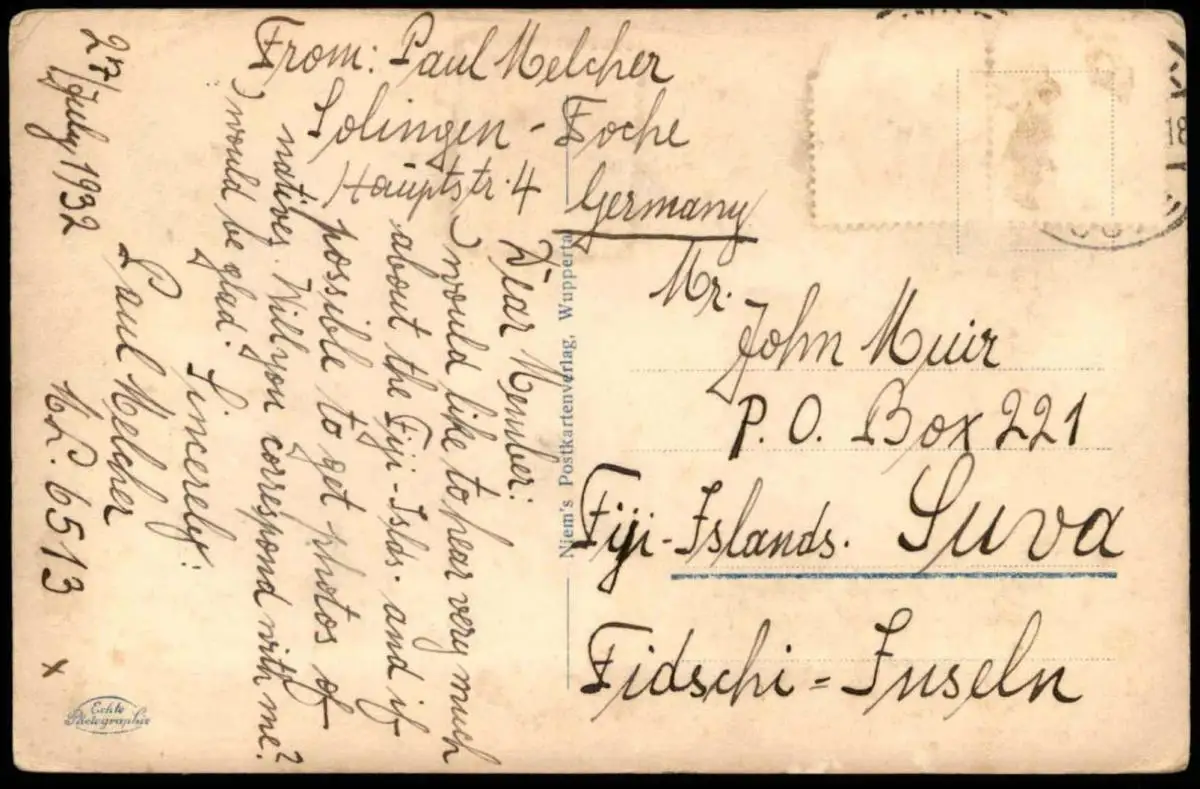 From: Paul Melcher
Solingen - Foche
Hauptstr. 4
Germany
27/July 1932
Dear Member:
I would like to hear very much
about the Fiji-Islds. and if
possible to get photos of
natives. Will you correspond with me?
I would be glad!
Sincerely:
Paul Melcher
M.L. 6513 x
Niem's Postkartenverlag, Wupperta
Mr.
John Muir
P. O. Box 221
Fiji-Islands. Suva
Fidschi = Inseln
Echte
Photographie
18